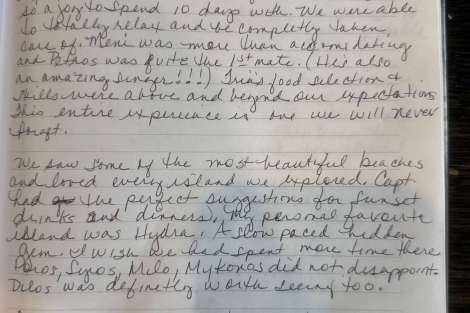 so a joy to spend 10 days with. We were able
to totally relax and be completly taken
care of. Meni was more than accomodating
and Petros was QUITE the 1st mate. (He is also
an amazing singer!!!) Iria's food selection &
skills were above and beyond our expectations
This entire experience is one we will never
forget.
We saw some of the most beautiful beaches
and loved every island we explored. Capt.
had the perfect suggestions for sunset
drinks and dinners. My personal favorite
island was Hydra. A slow paced hidden
gem. I wish we had spent more time there
Poros, Syros, Milo, Mykonos did not disappoint.
Delos was definetly worth seeing too.